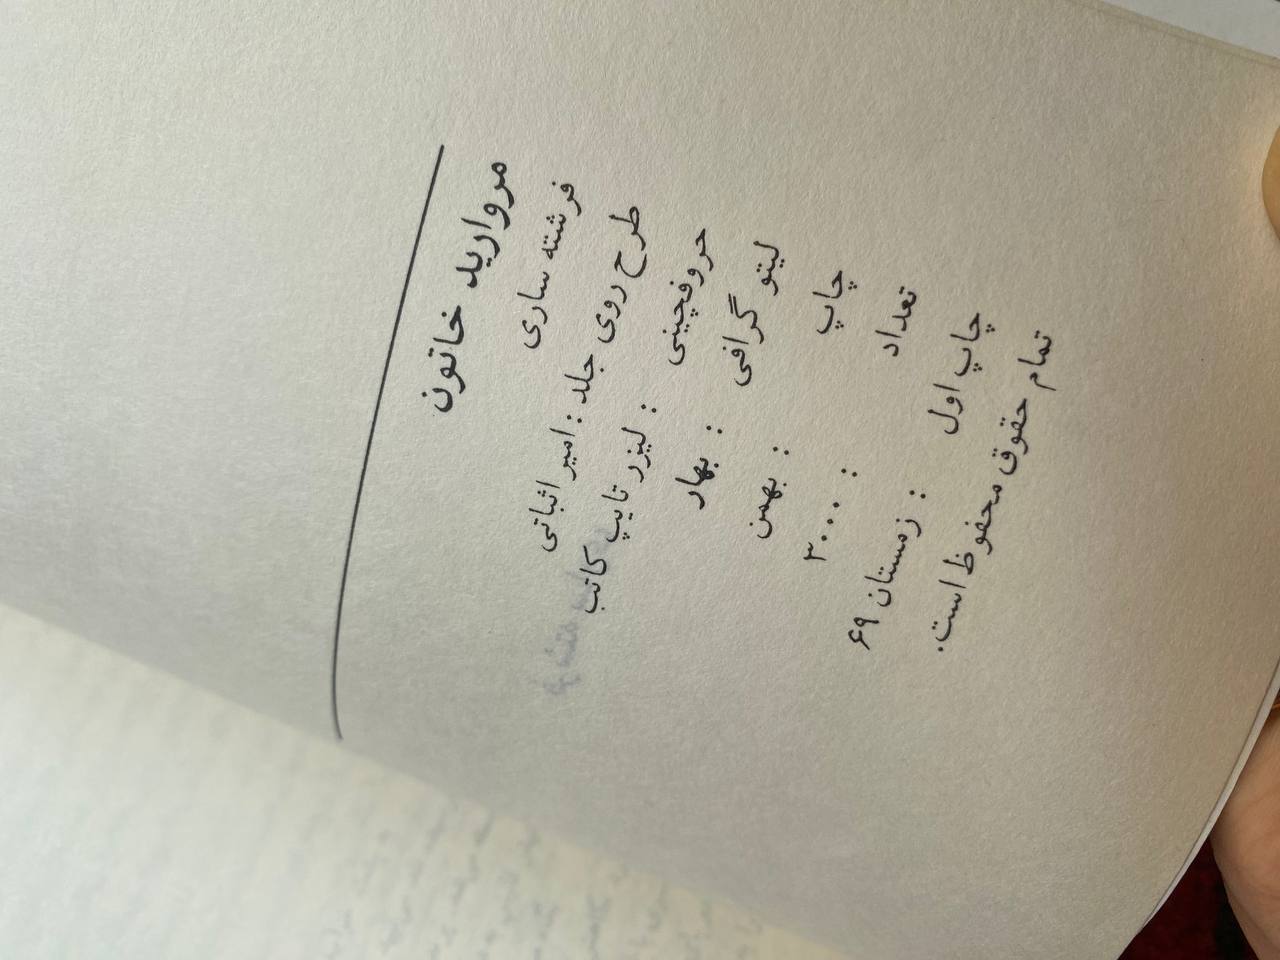 مروارید خاتون
فرشته ساری
طرح روی جلد : امیر اثباتی
حروفچینی : لیزر تایپ کاتب
لیتو گرافی : بهار
چاپ : بهمن
تعداد : ۳۰۰۰
چاپ اول : زمستان ۶۹
تمام حقوق محفوظ است.